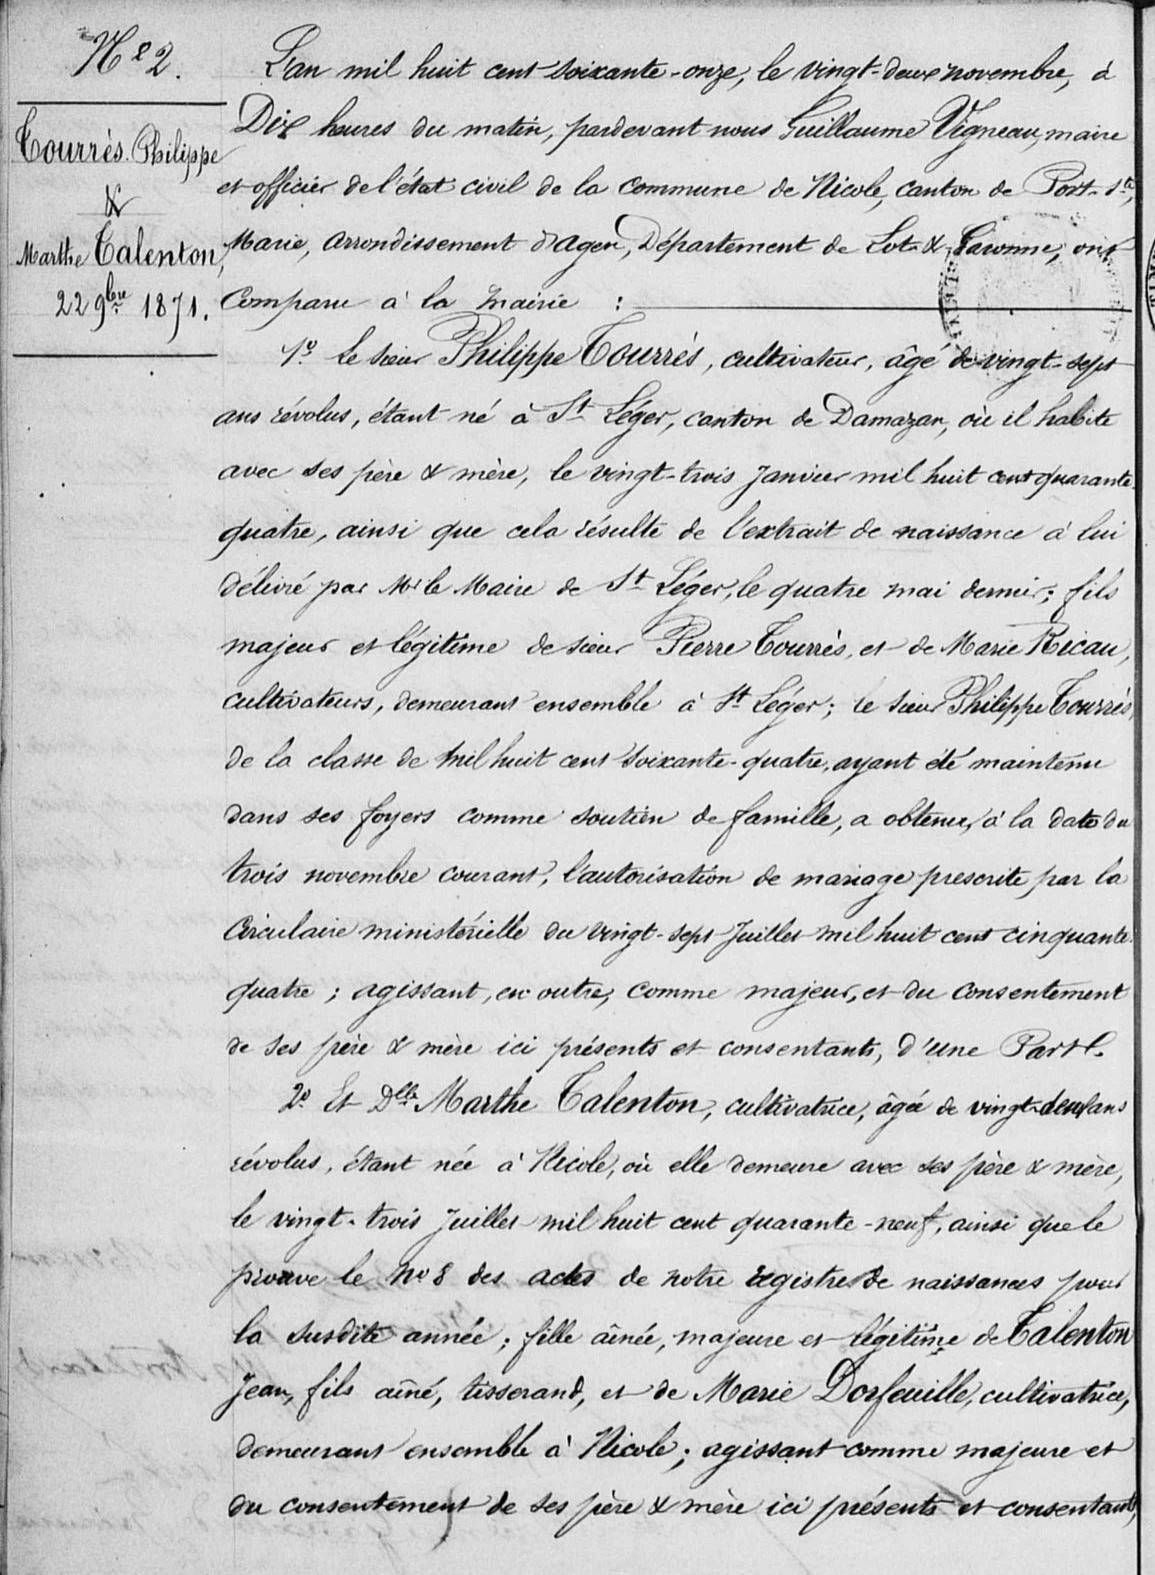 N° 2.
Tourrès Philippe
&
Marthe Talenton,
22 9bre 1871.
L'an mil huit cent soixante-onze, le vingt-deux novembre, à
Dix heures du matin, pardevant nous Guillaume Vigneau, maire
et officier de l'état civil de la commune de Nicole, canton de Port-Ste
Marie, arrondissement d'Agen, Département de Lot & Garonne, ont
Comparu à la Mairie :
1° Le sieur Philippe Tourrès, cultivateur, âgé de vingt-sept
ans révolus, étant né à St Léger, canton de Damazan, où il habite
avec ses père & mère, le vingt-trois Janvier mil huit cent quarante-
quatre, ainsi que cela résulte de l'extrait de naissance à lui
délivré par Mr le Maire de St Léger, le quatre mai dernier; fils
majeur et légitime de sieur Pierre Tourrès, et de Marie Ricau,
cultivateurs, demeurant ensemble à St Léger; le sieur Philippe Tourrès,
de la classe de mil huit cent soixante-quatre, ayant été maintenu
dans ses foyers comme soutien de famille, a obtenu, à la date du
trois novembre courant, l'autorisation de mariage prescrite par la
Circulaire ministérielle du vingt-sept Juillet mil huit cent cinquante-
quatre; agissant, en outre, comme majeur, et du consentement
de ses père & mère ici présents et consentants, d'une Part.
2° Et Dlle Marthe Talenton, cultivatrice, âgée de vingt-deux ans
révolus, étant née à Nicole, où elle demeure avec ses père & mère,
le vingt-trois Juillet mil huit cent quarante-neuf, ainsi que le
prouve le no 8 des actes de notre registre de naissances pour
la susdite année; fille aînée, majeure et légitime de Talenton
Jean, fils aîné, tisserand, et de Marie Dorfeuille, cultivatrice,
demeurant ensemble à Nicole; agissant comme majeure et
du consentement de ses père & mère ici présents et consentants,